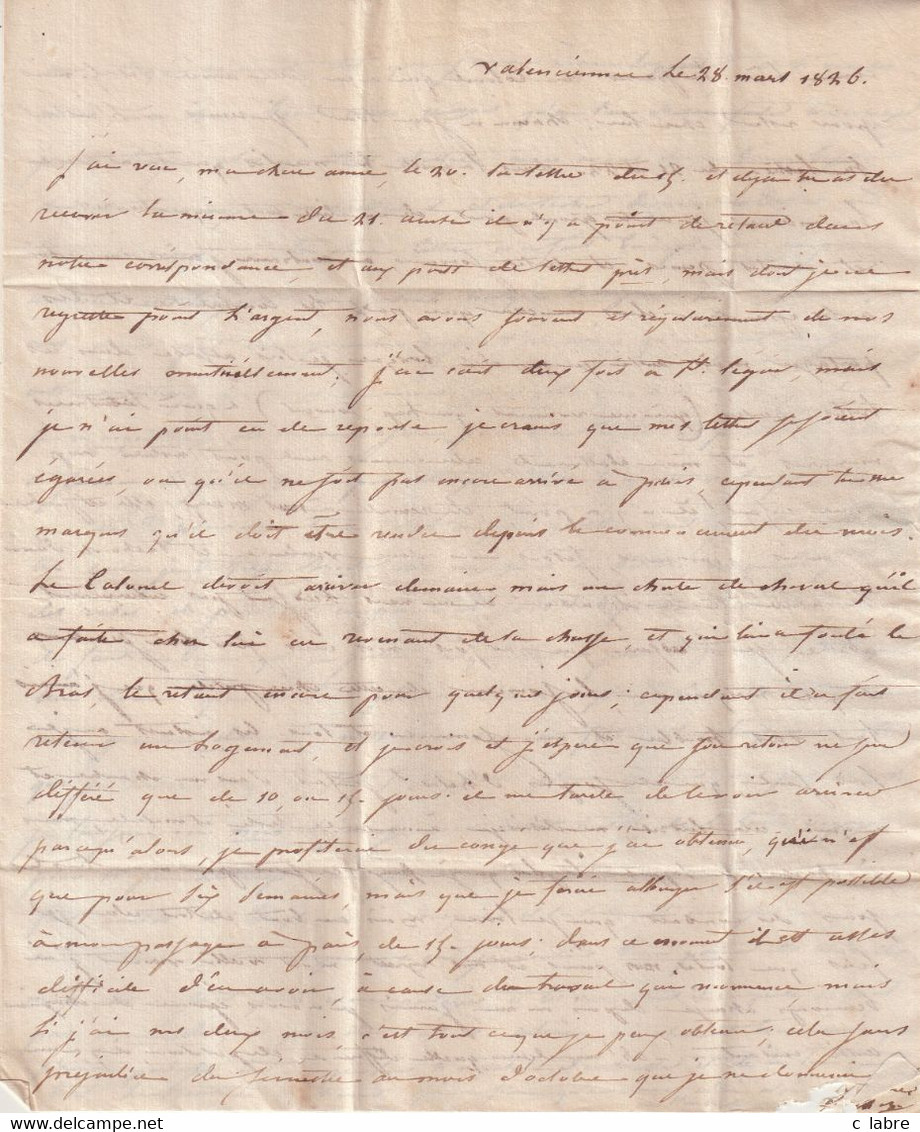 Valenciennes le 28. mars 1826.
J'ai reçu, ma chere amie, le 20. ta lettre du 15. et dejà tu as du
recevoir la mienne du 21. ainsi il n'y a point de retard dans
notre correspondance, et aux ports de lettres près, mais dont je ne
regrette point l'argent, nous avons souvent et régulierement de nos
nouvelles mutuellement; j'ai écrit deux fois à St. légier, mais
je n'ai point eu de reponse, je crains que mes lettres se soient
égarées, ou qu'il ne soit pas encore arrivé à paris, cependant tu me
marques qu'il doit être rendu depuis le commencement du mois.
Le Colonel devoit arriver demain, mais une chute de cheval qu'il
a faite chez lui en revenant de la chasse et qui lui a foulé le
bras, le retient encore pour quelques jours; cependant il a fait
retenir un logement, et je crois et j'espere que son retour ne sera
différé que de 10, ou 15. jours. il me tarde de le voir arriver
parcequ'alors, je profiterai du congé que j'ai obtenu, qui n'est
que pour six semaines, mais que je ferai allonger s'il est possible
à mon passage à paris, de 15. jours; dans ce moment il est assez
difficile d'en avoir, à cause du travail qui commence mais
si j'ai mes deux mois, c'est tout ce que je peux obtenir; cela sans
préjudice du semestre au mois d'octobre que je ne
c labre